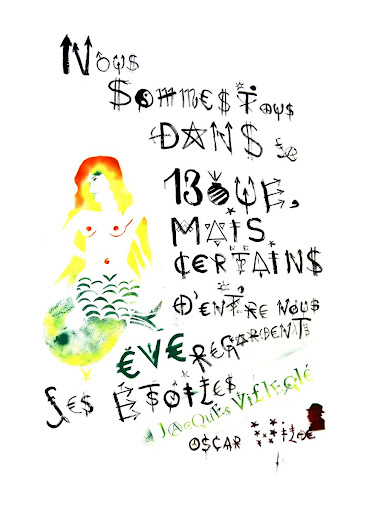 Nous
Sommes Tous
DANS la
BOUE,
MAIS
CERTAINS
D'ENTRE NOUS
ÈVE REGARDENT
LES ÉTOILES
à JACQUES VILLEGLÉ
OSCAR WILDE